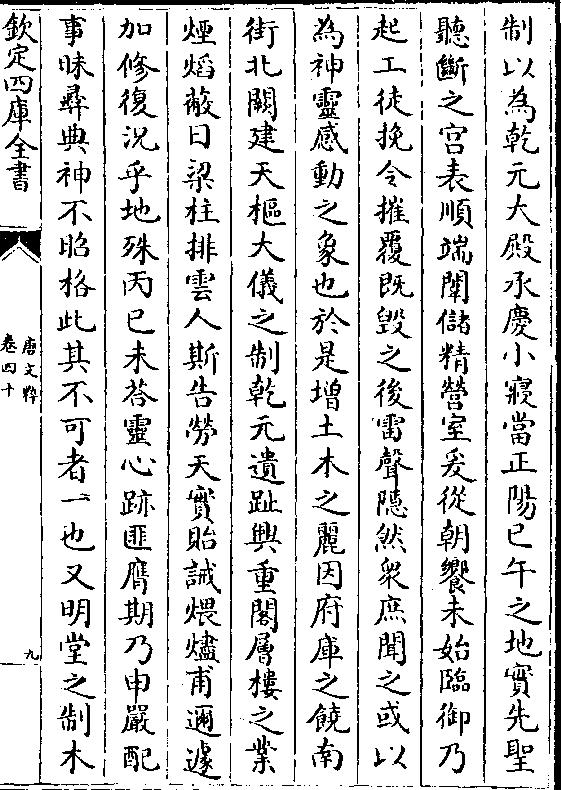 制以為乾元大殿承慶小寢當正陽巳午之地實先聖
聽斷之宫表順端闈儲精營室爰從朝饗未始臨御乃
起工徒挽令摧覆既毁之後雷聲隱然衆庶聞之或以
為神靈感動之象也於是增土木之麗因府庫之饒南
街北闕建天樞大儀之制乾元遺趾興重閣層樓之業
煙熖蔽日梁柱排雲人斯告勞天實貽誡煨燼甫邇遽
加修復況乎地殊丙巳未荅靈心跡匪膺期乃申嚴配
事昧彞典神不昭格此其不可者一也又明堂之制木
欽定四庫全書
唐文粹
卷四十
九